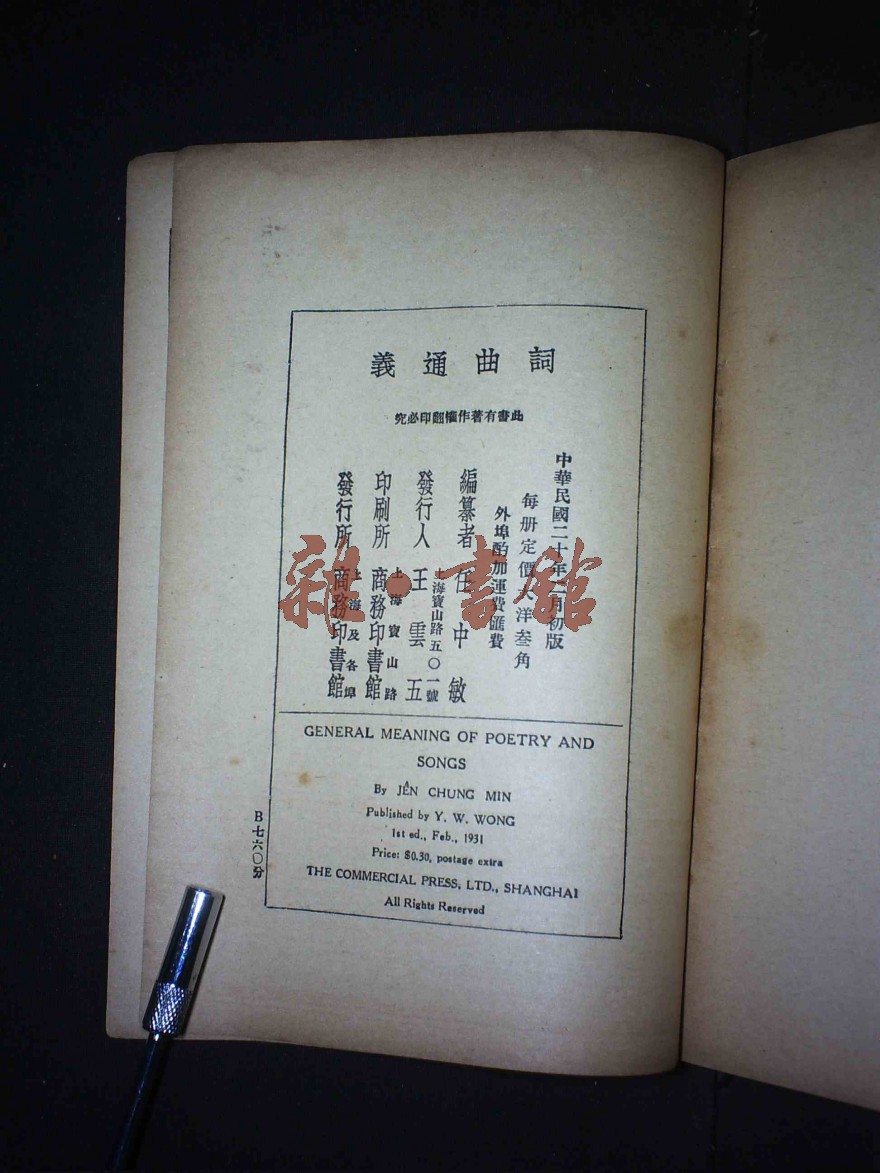 詞曲通義
此書有著作權翻印必究
中華民國二十年二月初版
每册定價大洋叁角
外埠酌加運費匯費
編纂者 任中敏
發行人 王雲五
上海寶山路五〇一號
印刷所 商務印書館
上海寶山路
發行所 商務印書館
上海及各埠
雜·書館
GENERAL MEANING OF POETRY AND
SONGS
By JÊN CHUNG MIN
Published by Y. W. WONG
1st ed., Feb., 1931
Price: $0.30, postage extra
THE COMMERCIAL PRESS, LTD., SHANGHAI
All Rights Reserved
B七六〇分